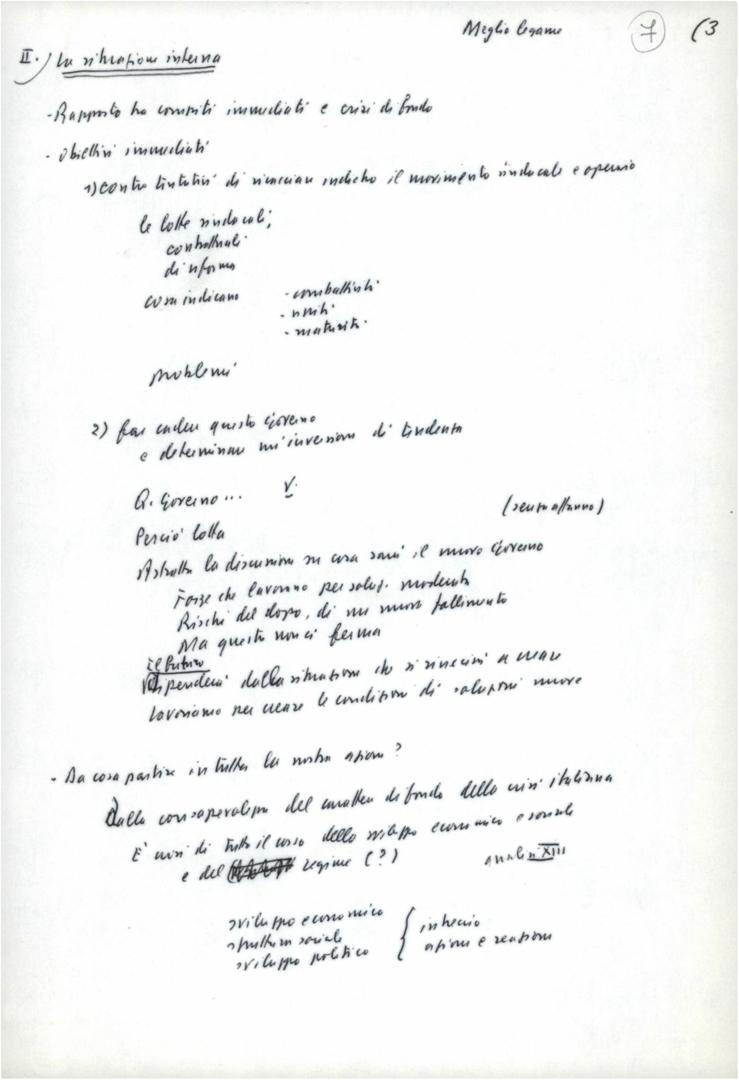 Meglio legame 7 (3
II.) La situazione interna
- Rapporto tra compiti immediati e crisi di fondo
- Obiettivi immediati
1) contro tentativi di ricacciare indietro il movimento sindacale e operaio
le lotte sindacali;
contrattuali
di riforma
cosa indicano - combattività
- unità
- maturità
problemi
2) far cadere questo Governo
e determinare un'inversione di tendenza
Q. Governo... V.
(senza affanno)
Perciò lotta
Astratta la discussione su cosa sarà il nuovo Governo
Forze che lavorano per soluz. moderata
Rischi del dopo, di un nuovo fallimento
Ma questo non ci ferma
il futuro
Dipenderà dalla situazione che si riuscirà a creare
Lavoriamo per creare le condizioni di soluzioni nuove
- Da cosa partire in tutta la nostra azione?
Dalla consapevolezza del carattere di fondo della crisi italiana
È crisi di tutto il corso dello sviluppo economico e sociale
e del regime (?)
analisi XIII
sviluppo economico
struttura sociale
sviluppo politico
intreccio
azione e reazione